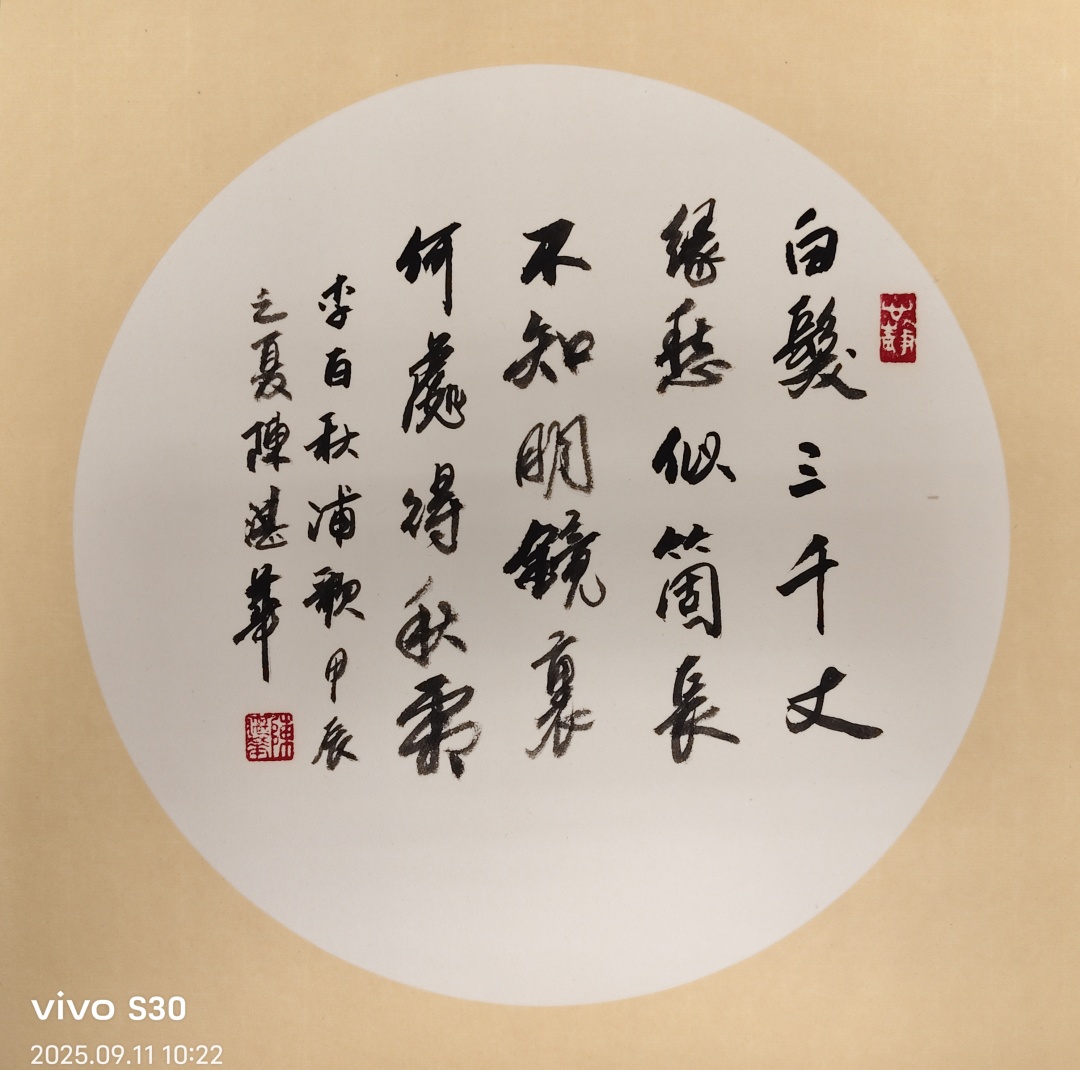 白髮三千丈
緣愁似箇長
不知明鏡裏
何處得秋霜
李白秋浦歌甲辰
之夏陳湛華
vivo S30
2025.09.11 10:22